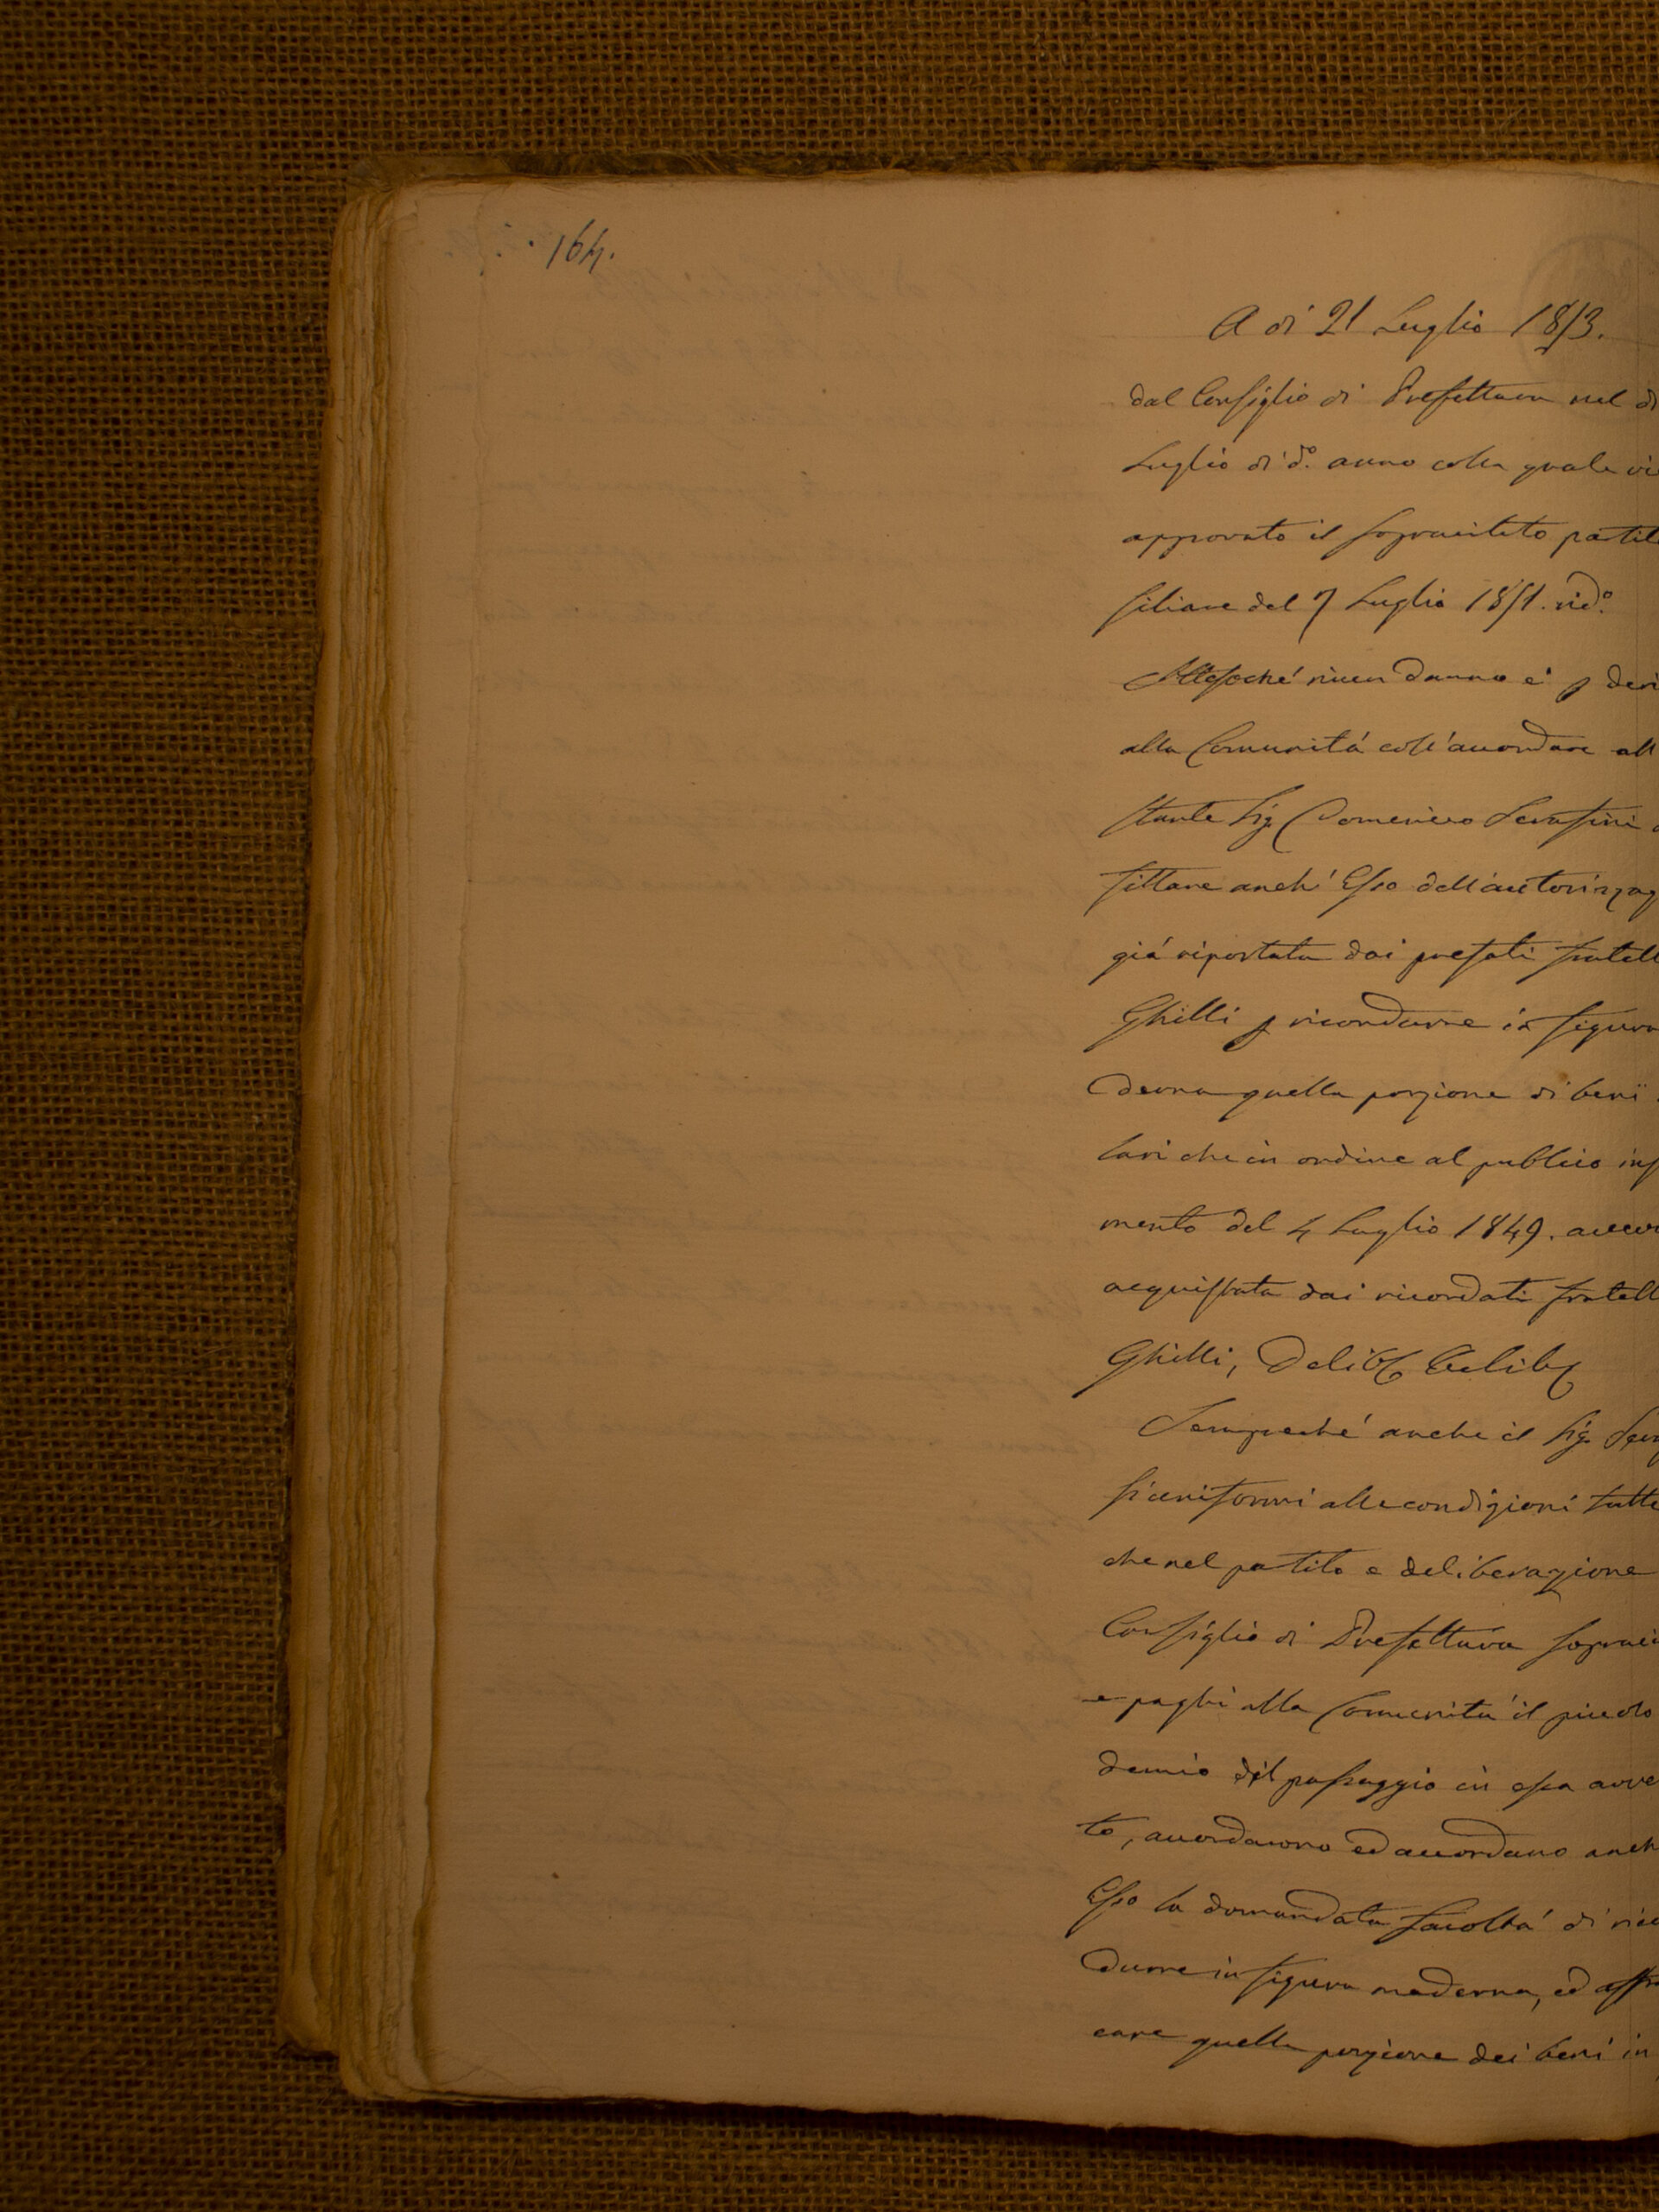 164.
A di 21 Luglio 1853.
dal Consiglio di Prefettura nel di
Luglio di do. anno colla quale
approvato il sopracitato
siliare del 7 Luglio 1851.
Attesoché niun danno è p
alla Comunitá coll'accordare
stante Sig. Domenico Serafini
fittare anch' Esso dell'autorizzaz
giá riportata dai prefati fratell
Ghilli p ricondurre in figura
derna quella porzione di beni
lari che in ordine al publico
mento del 4 Luglio 1849.
acquistata dai ricordati fratell
Ghilli, Delib
Sempreché anche il Sig.
si uniformi alle condizioni tutte
che nel partito e deliberazione
Consiglio di Prefettura
e paghi alla Comunitá il piccolo
demio del passaggio in essa
to, accordarono ed accordano
Esso la domandata facoltá di
durre in figura moderna, ed
care quella porzione dei beni in